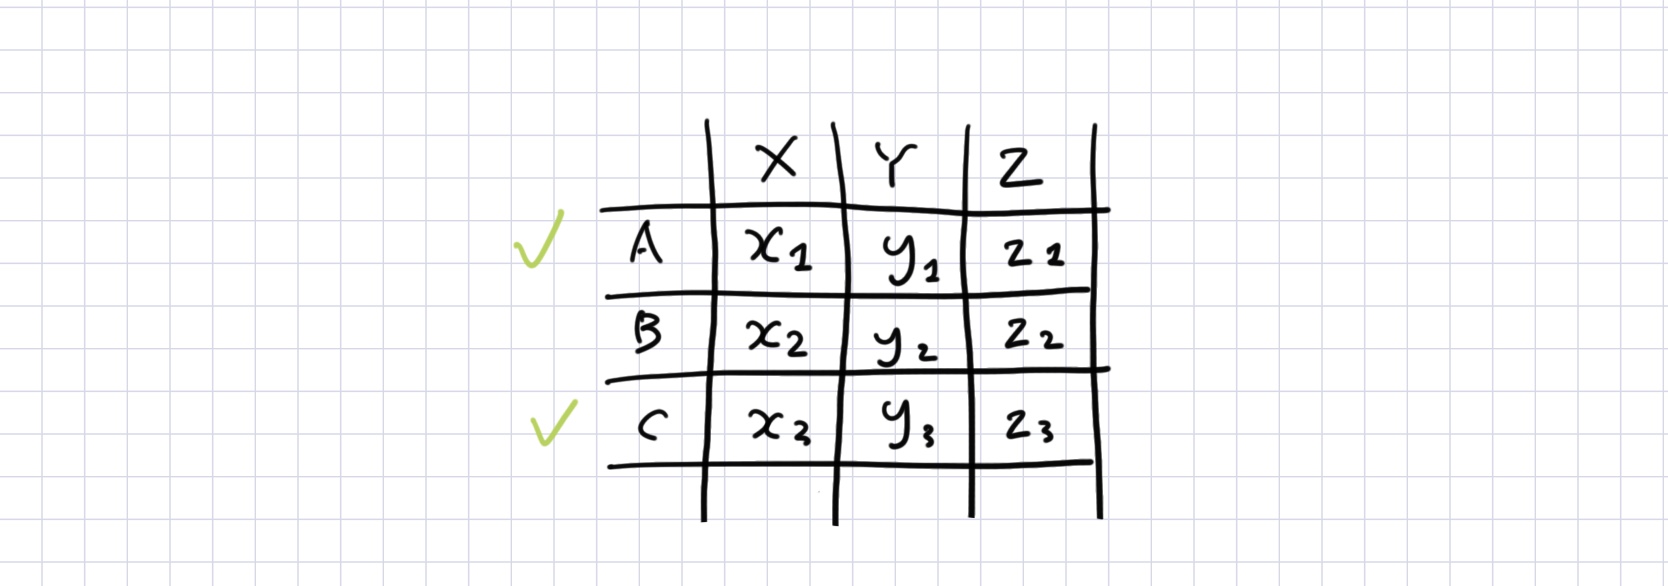 X Y Z
✓ A x₁ y₁ z₁
B x₂ y₂ z₂
✓ C x₃ y₃ z₃